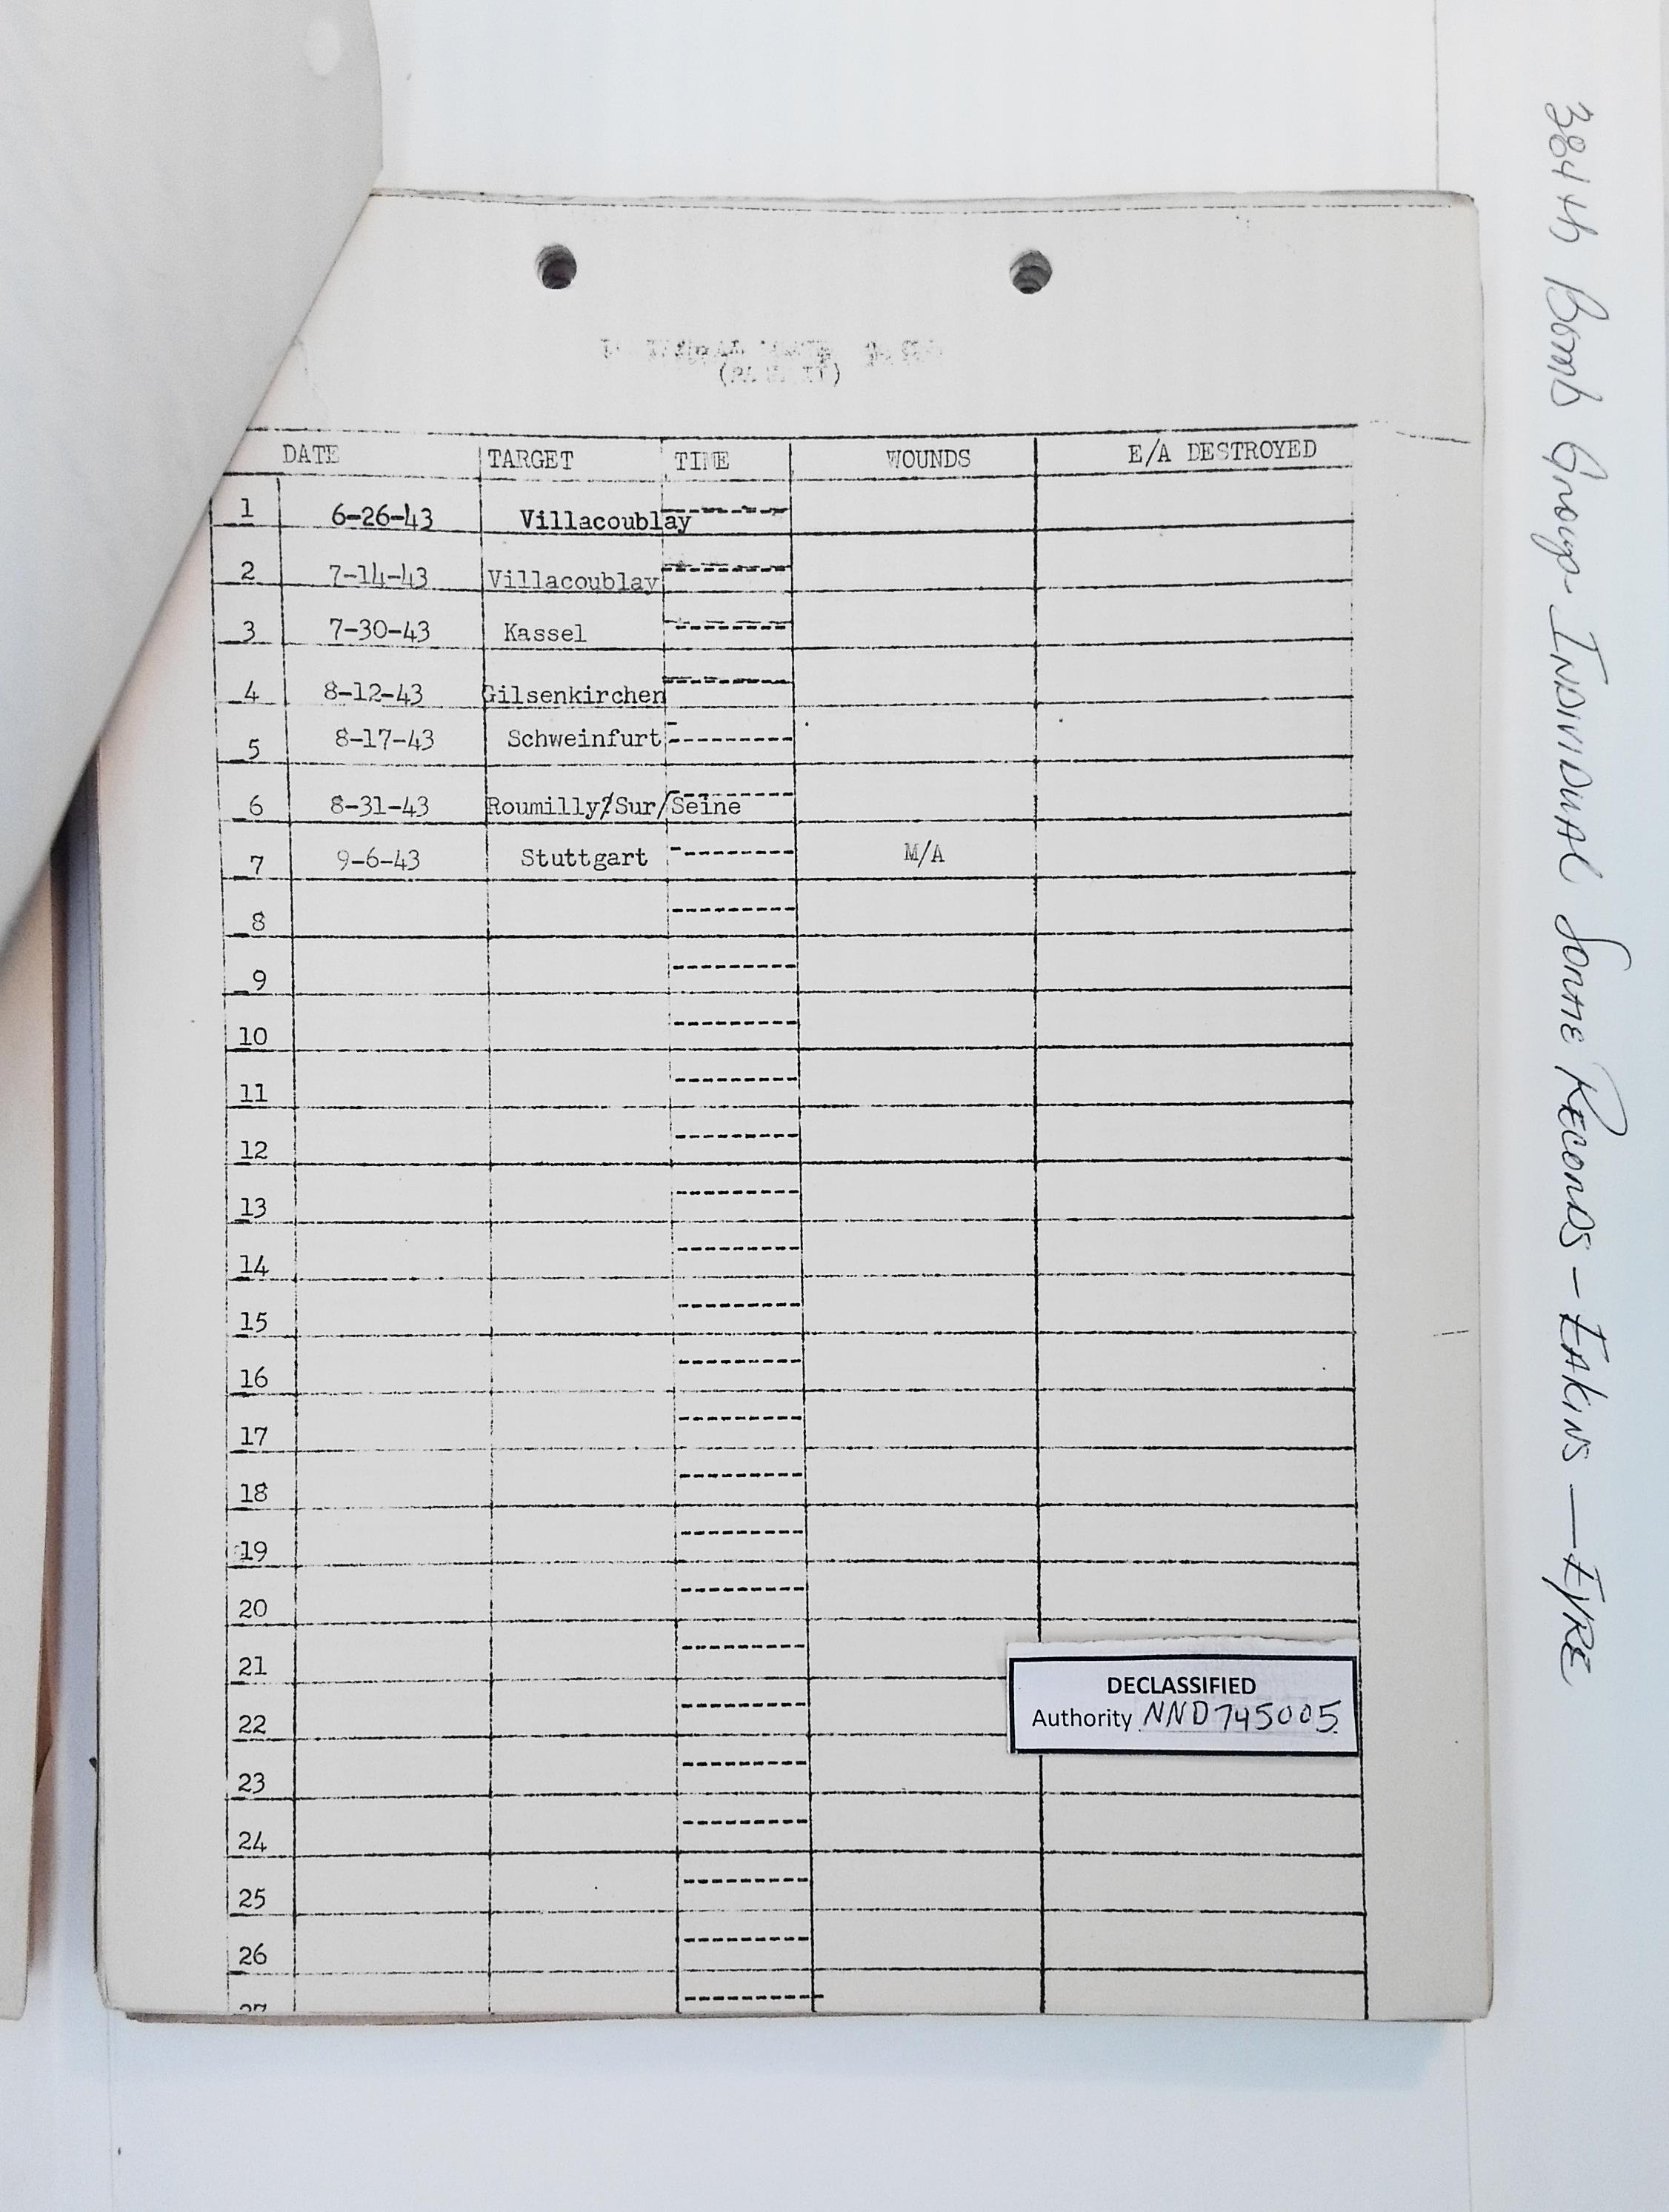 DATE TARGET TIME WOUNDS E/A DESTROYED
1 6-26-43 Villacoublay
2 7-14-43 Villacoublay
3 7-30-43 Kassel
4 8-12-43 Gilsenkirchen
5 8-17-43 Schweinfurt
6 8-31-43 Roumilly/Sur/Seine
7 9-6-43 Stuttgart M/A
8
9
10
11
12
13
14
15
16
17
18
19
20
21
22
23
24
25
26
27
DECLASSIFIED
Authority NND745005
384th Bomb Group - INDIVIDUAL Sortie RECORDS - EAKINS - EYRE